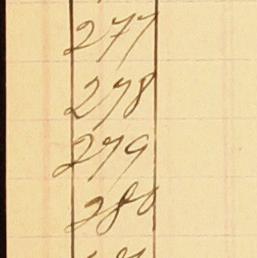 277
278
279
280